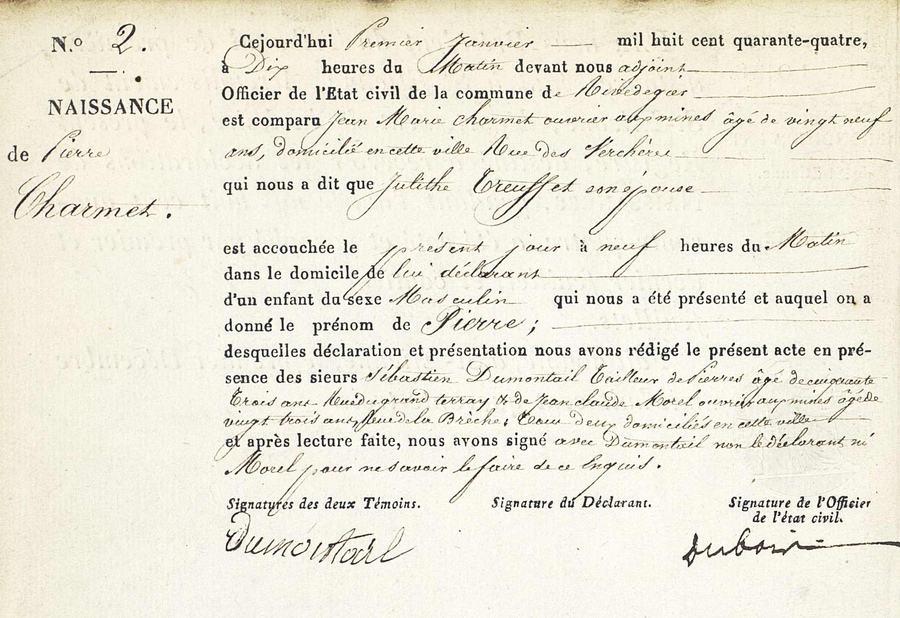 N.º 2.
NAISSANCE
de Pierre
Charmet.
Cejourd'hui Premier Janvier mil huit cent quarante-quatre,
à Dix heures du Matin devant nous adjoint
Officier de l'Etat civil de la commune de Rivedegier
est comparu Jean Marie Charmet ouvrier aux mines âgé de vingt neuf
ans, domicilié en cette ville Rue des Verchères
qui nous a dit que Julithe son épouse
est accouchée le présent jour à neuf heures du Matin
dans le domicile de lui déclarant
d'un enfant du sexe Masculin qui nous a été présenté et auquel on a
donné le prénom de Pierre;
desquelles déclaration et présentation nous avons rédigé le présent acte en pré-
sence des sieurs Sébastien Dumontail Tailleur de Pierres âgé de cinquante
Trois ans Rue du grand terray & de Jean claude Morel ouvrier aux mines âgé de
vingt trois ans, Rue de la Brèche; Tous deux domiciliés en cette ville
et après lecture faite, nous avons signé avec Dumontail non le déclarant ni
Morel pour ne savoir le faire de ce Enquis.
Signatures des deux Témoins. Signature du Déclarant. Signature de l'Officier
de l'état civil.
Dumontail Dubois